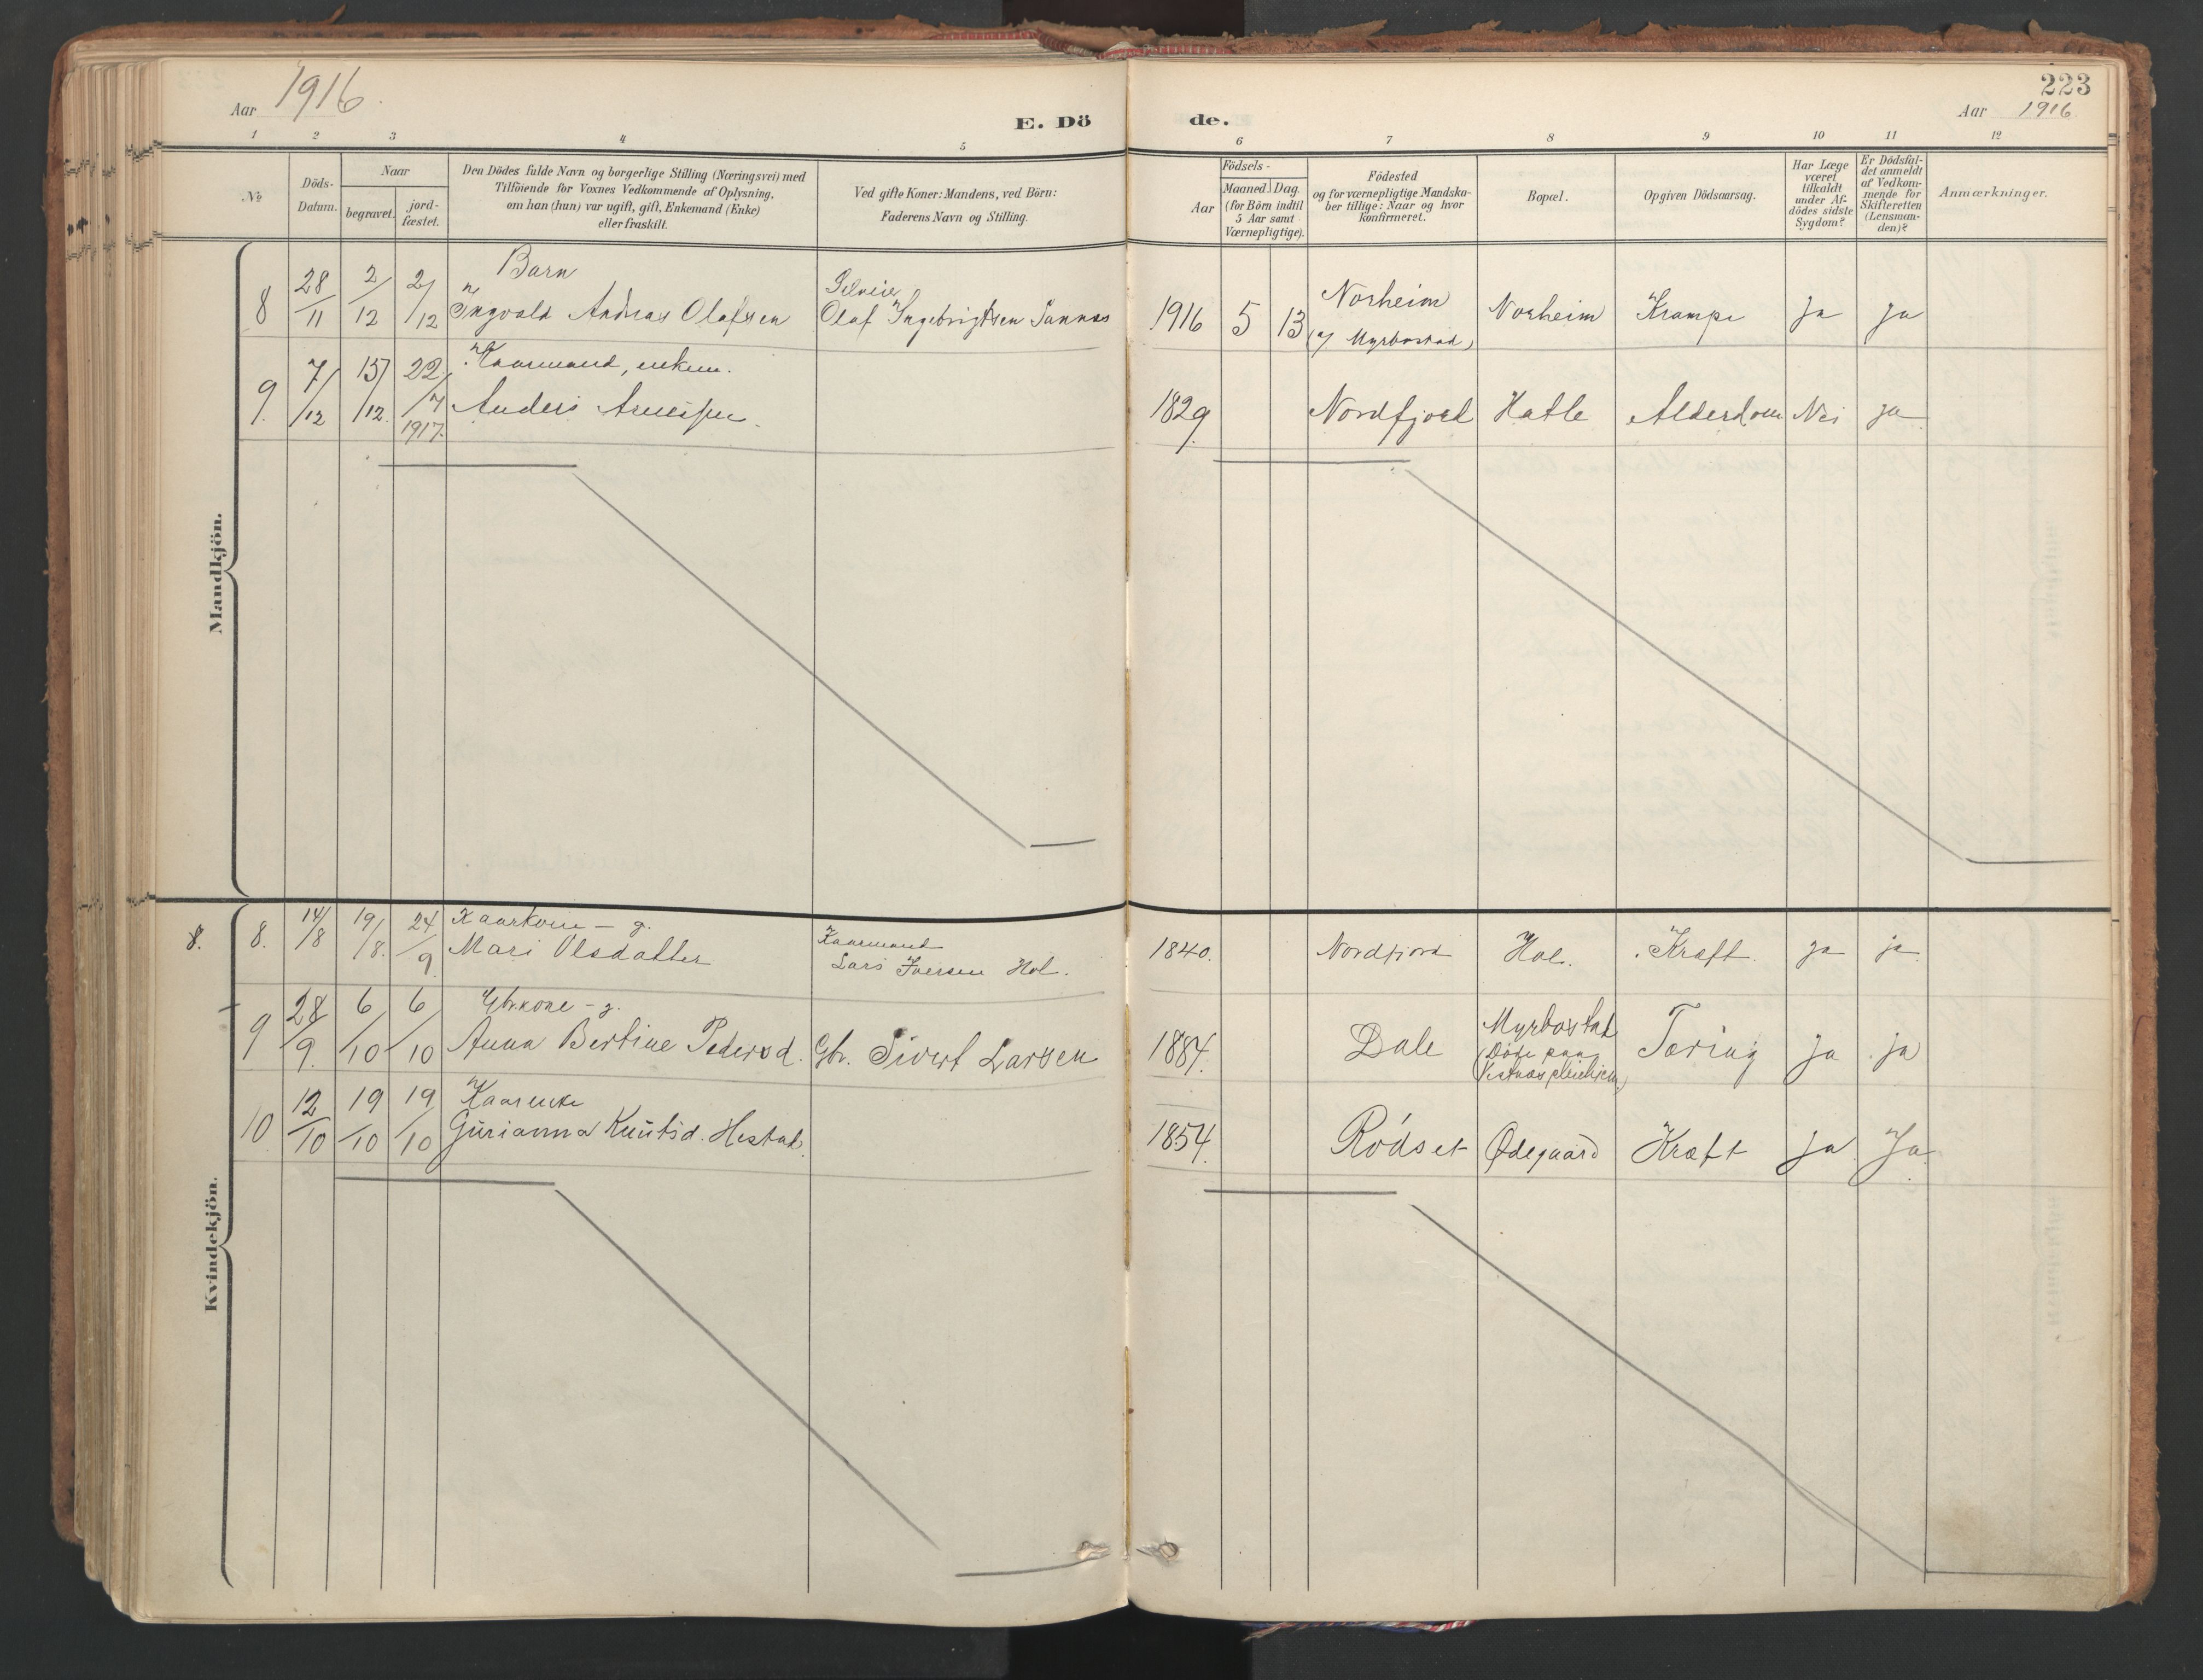 223
Aar 1916.
E. Dö
de.
Aar 1916
1 2 3 4 5 6 7 8 9 10 11 12
No
Döds-
Datum.
Naar
begravet.
jord-
fæstet.
Den Dödes fulde Navn og borgerlige Stilling (Næringsvei) med
Tilföiende for Voxnes Vedkommende af Oplysning,
om han (hun) var ugift, gift, Enkemand (Enke)
eller fraskilt.
Ved gifte Koner: Mandens, ved Börn:
Faderens Navn og Stilling.
Födsels-
Aar
Maaned Dag.
(for Börn indtil
5 Aar samt
Værnepligtige).
Födested
og for værnepligtige Mandska-
ber tillige: Naar og hvor
konfirmeret.
Bopæl.
Opgiven Dödsaarsag.
Har Læge
været
tilkaldt
under Af-
dödes sidste
Sygdom?
Er Dödsfal-
det anmeldt
af Vedkom-
mende for
Skifteretten
(Lensman-
den)?
Anmærkninger.
Mandkjön.
8 28/11 2/12 2/12
Barn
Ingvald Andreas Olafsen
Selveier
Olaf Ingebrigtsen Sannes
1916 5 13
Norheim
(v/ Myrbostad)
Norheim Krampe Ja ja
9. 7/12 15/12. 22/7 1917.
Kaarmand, enkem.
Anders Arnesen.
1829 Nordfjord Hatle Alderdom Nei ja
Kvindekjön.
8. 8. 14/8 19/8. 24/9
Kaarkone - g.
Mari Olsdatter
Kaarmand
Lars Iversen Hol.
1840. Nordfjord Hol. Kræft. ja ja
9 28/9. 6/10 6/10
Gbr.kone - g.
Anna Bertine Pedersd. Gbr. Sivert Larsen
1884. Dale
Myrbostad
(Döde paa
Vestnes pleiehjem)
Tæring ja ja
10 12/10 19/10 19/10
Kaarenke
Gurianna Knutsd. Hestad.
1854. Rödset Ødegaard Kræft ja Ja.